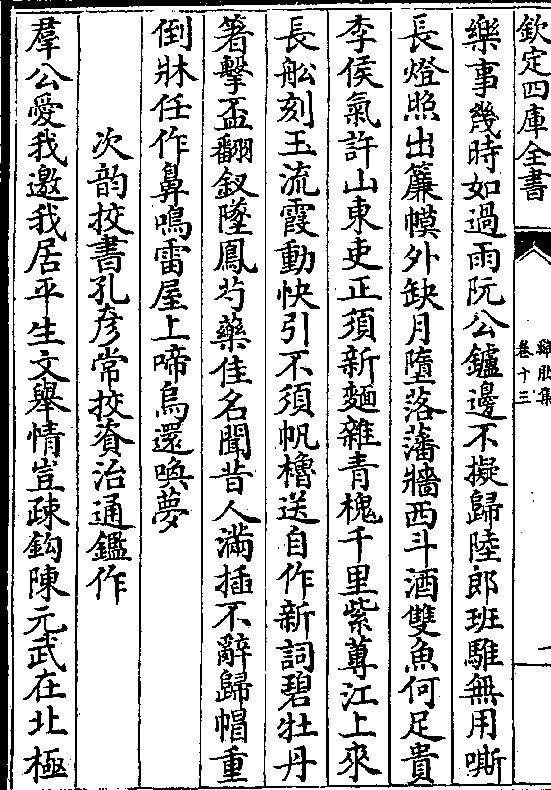 欽定四庫全書
雞肋集
卷十三
樂事幾時如過雨阮公鑪邊不擬歸陸郎班騅無用嘶
長燈照出簾幙外缺月墮落藩牆西斗酒雙魚何足貴
李侯氣許山東吏正須新麵雜青槐千里紫蓴江上來
長舩刻玉流霞動快引不須帆櫓送自作新詞碧牡丹
箸擊盃翻釵墜鳳芍藥佳名聞昔人滿插不辭歸帽重
倒牀任作鼻鳴雷屋上啼烏還喚夢
次韵挍書孔彦常挍資治通鑑作
羣公愛我邀我居平生文舉情豈疎鈎陳元武在北極